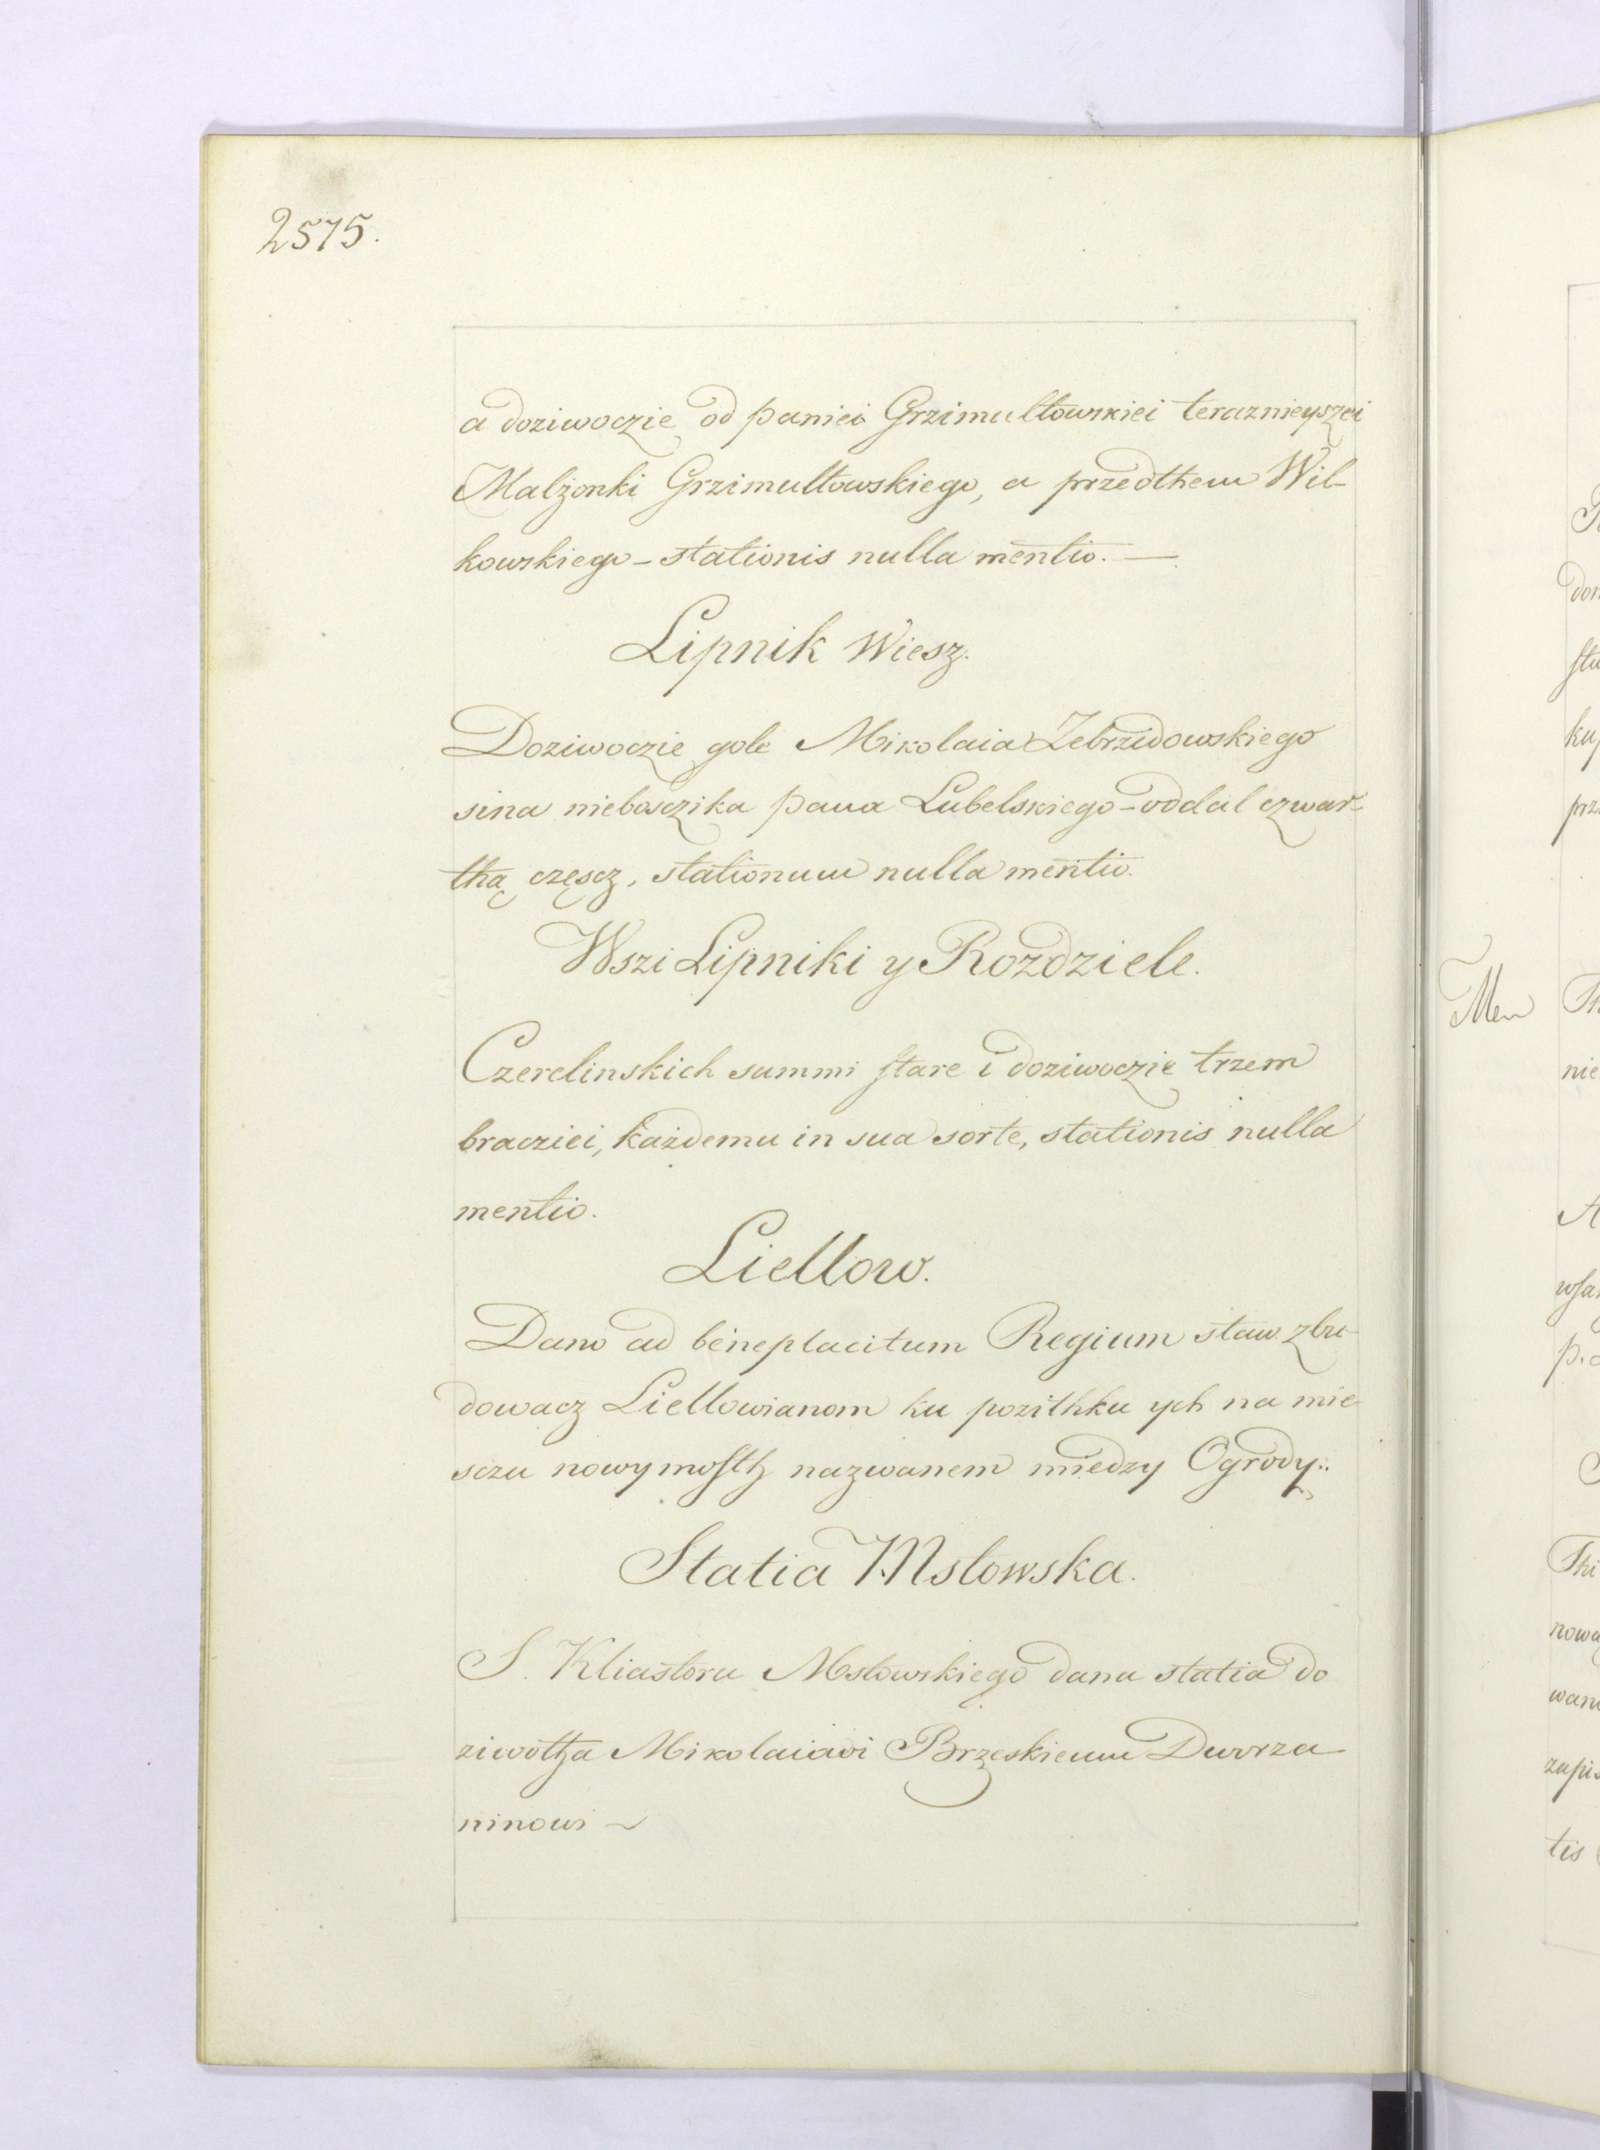 2575.
a doziwoczie od paniei Grzimultowskiei teraznieyszei
Malzonki Grzimultowskiego, a przedthem Wil-
kowskiego - stationis nulla mentio. —
Lipnik Wiesz.
Doziwoczie gole Mikolaia Zebrzidowskiego
sina nieboszczika pana Lubelskiego - oddal czwar-
thą częscz, stationum nulla mentio.
Wszi Lipniki y Rozdziele.
Czerelinskich summi stare i doziwoczie trzem
bracziei, każdemu in sua sorte, stationis nulla
mentio.
Liellow.
Dano ad beneplacitum Regium staw zbu-
dowacz Liellowianom ku pozithku ych na mie-
sczu nowymosth nazwanem miedzy Ogrody.
Statia Mslowska.
S. Kliastoru Mslowskiego dana statia do
ziwotha Mikolaiowi Brzeskiemu Dworza
ninowi ~
Men